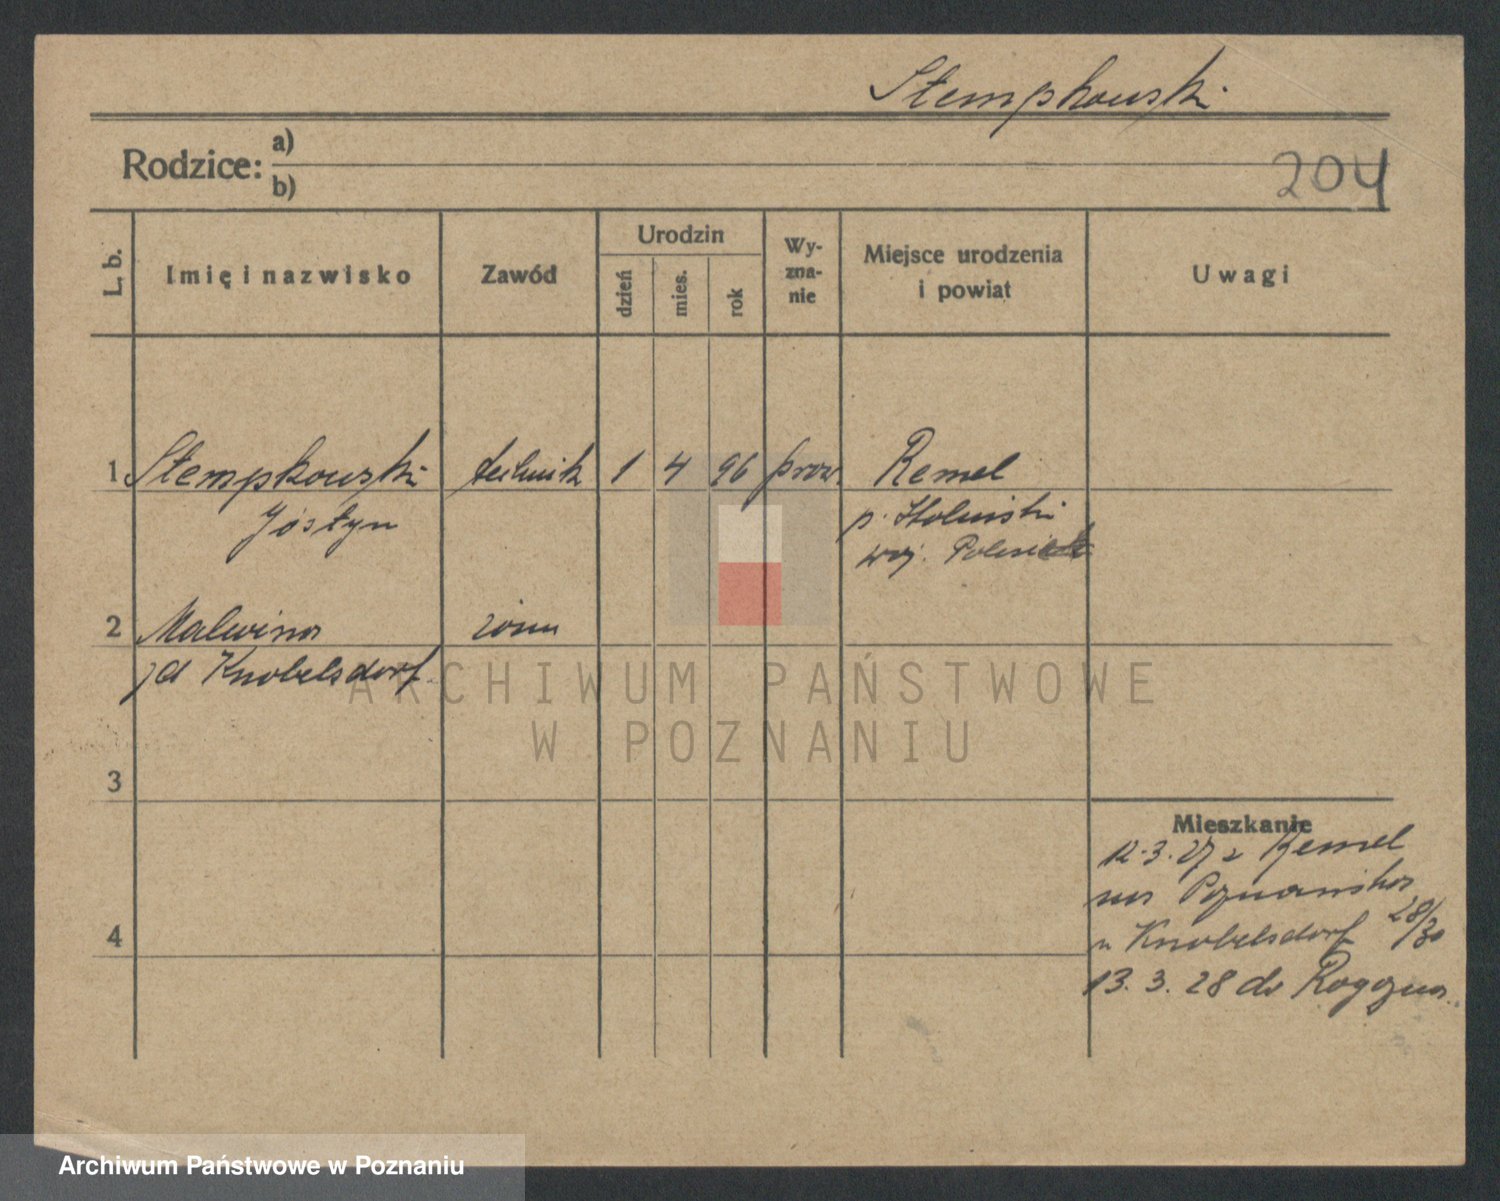 Stempkowski
Rodzice: a)
b)
204
L. b.
Imię i nazwisko
Zawód
Urodzin
dzień
mies.
rok
Wy-
zna-
nie
Miejsce urodzenia
i powiat
Uwagi
1 Stempkowski technik 1 4 96 praw. Remel
Jóstyn
p. Stoliński
woj. Poleskie
2 Malwina żona
zd Knobelsdorf
ARCHIWUM PAŃSTWOWE
W POZNANIU
3
Mieszkanie
12.3.27 z Remel
Poznańska
4
u Knobelsdorf 28/30
13.3.28 do Rogozna
Archiwum Państwowe w Poznaniu